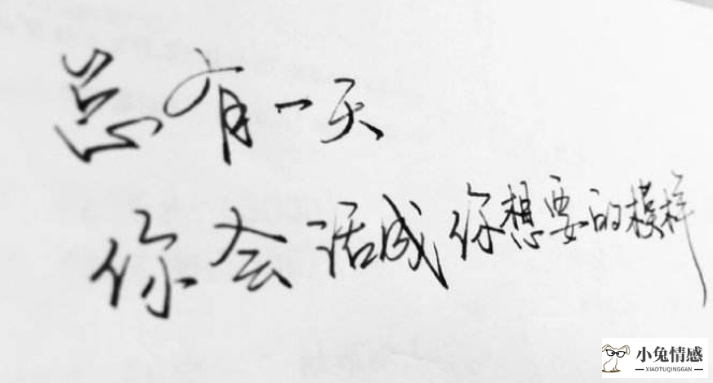 总有一天
你会活成你想要的模样
小兔情感
XIAOTUQINGGAN